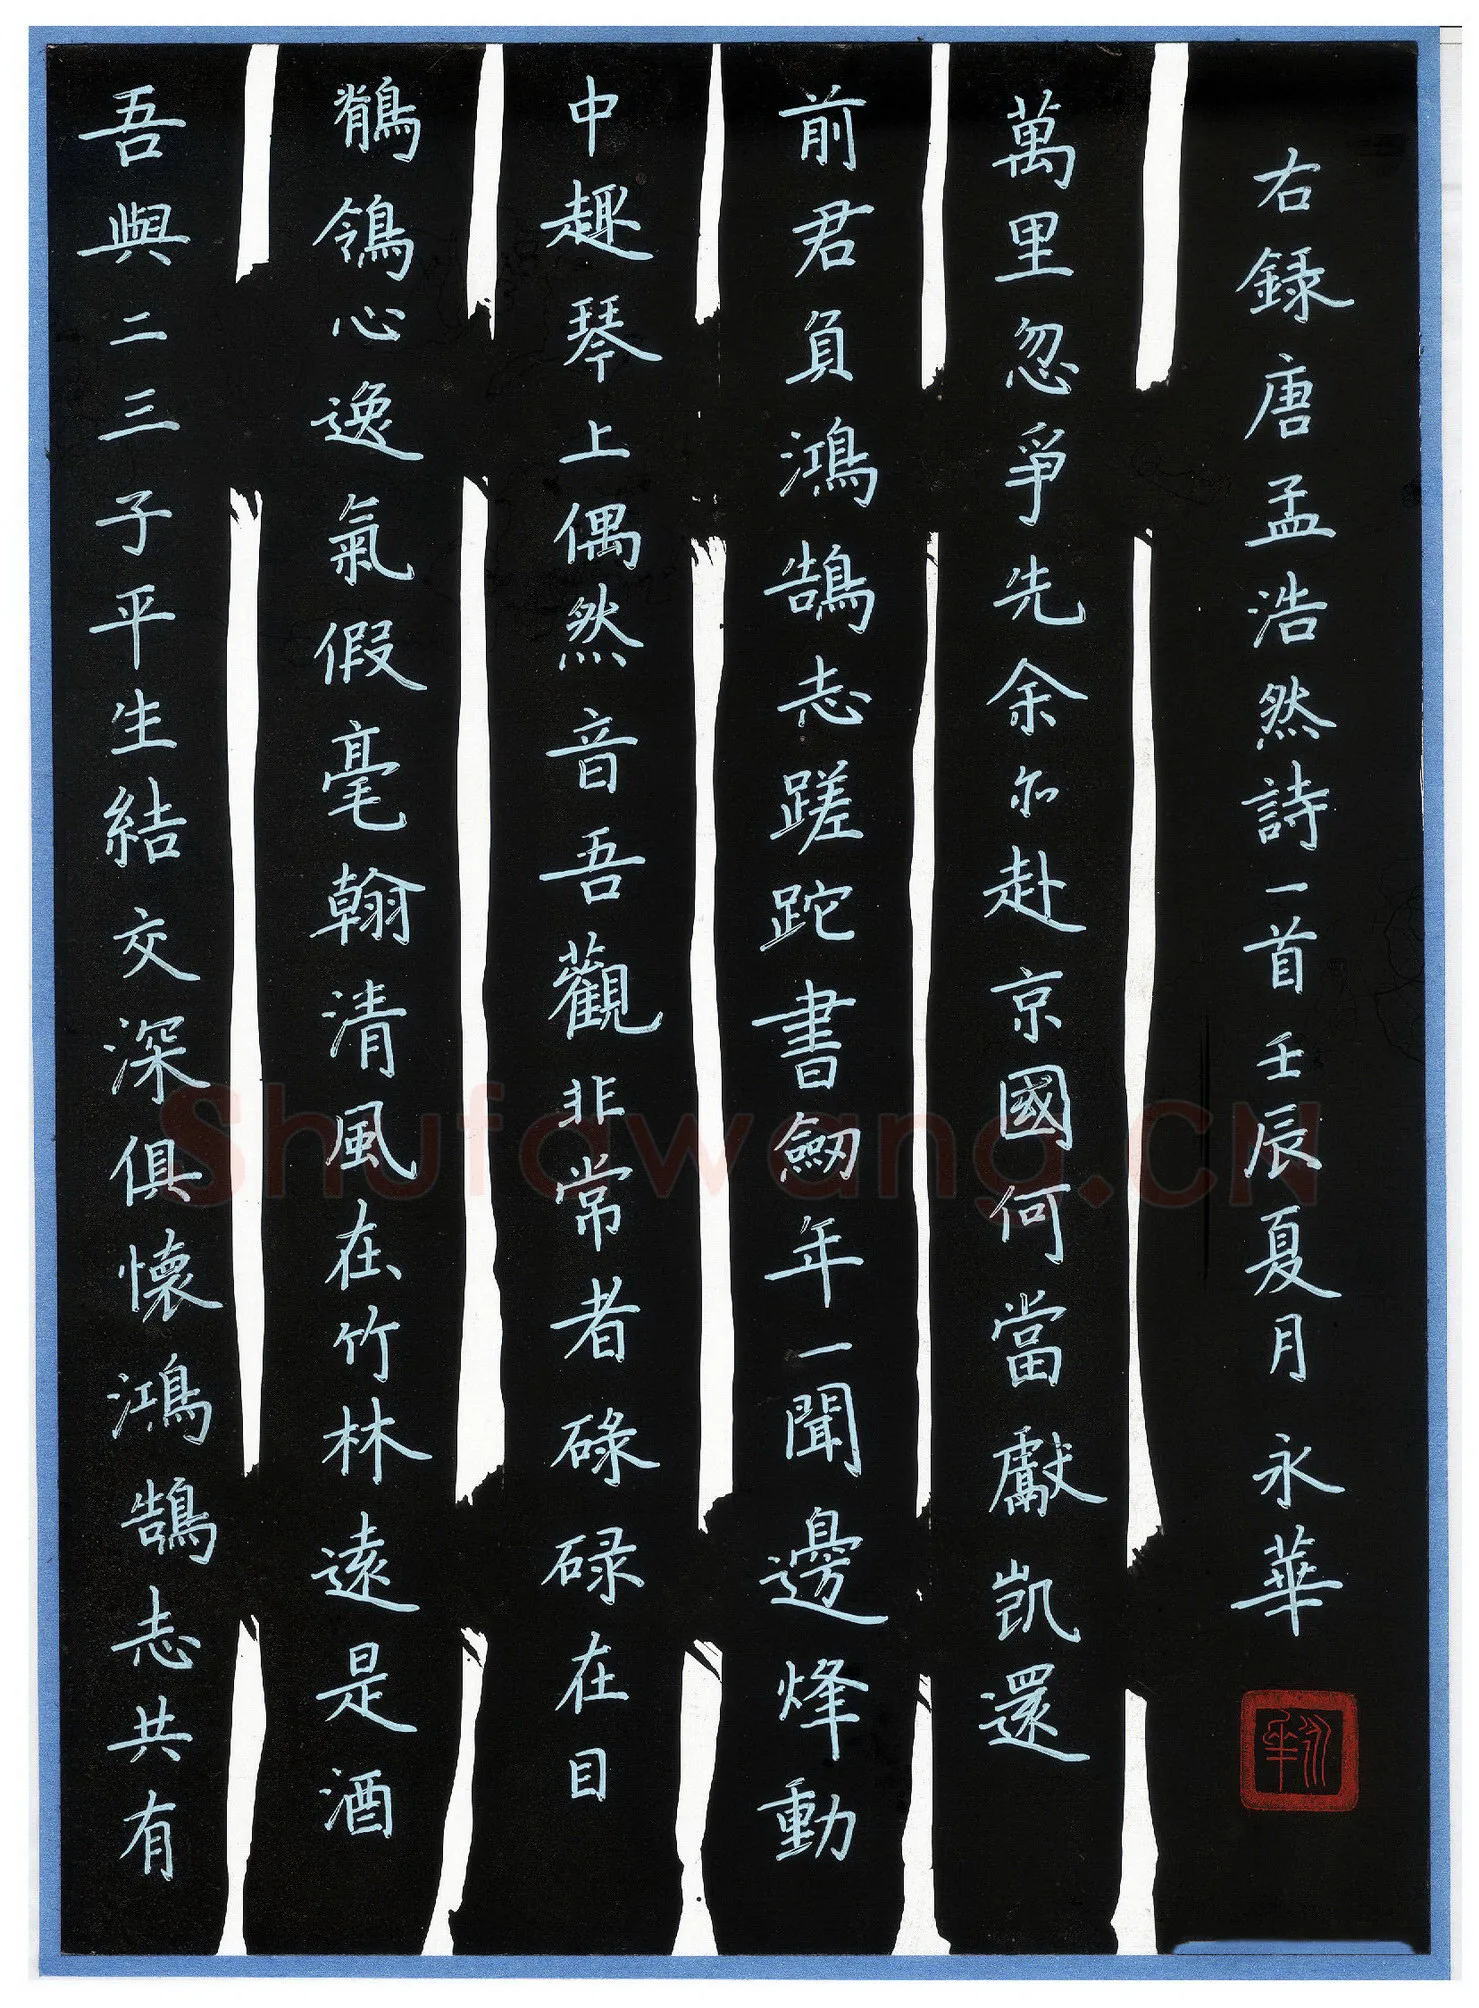 吾與二三子平生結交深俱懷鴻鵠志共有
鶺鴒心逸氣假毫翰清風在竹林遠是酒
中趣琴上偶然音吾觀非常者碌碌在目
前君負鴻鵠志蹉跎書劒年一聞邊烽動
萬里忽爭先余亦赴京國何當獻凱還
右録唐孟浩然詩一首壬辰夏月永華
永華
Shufawang.CN